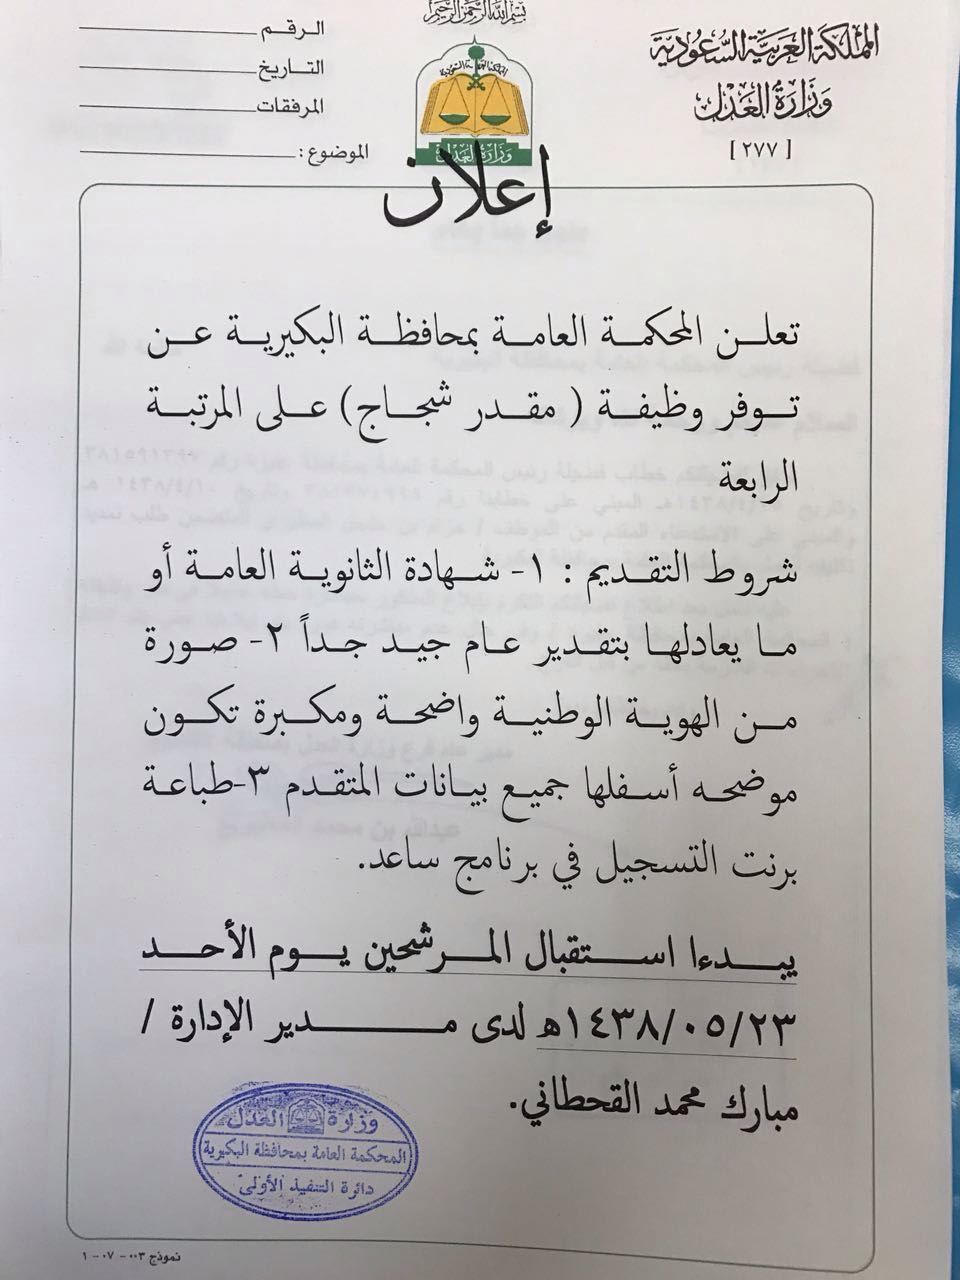 بسم الله الرحمن الرحيم
المملكة العربية السعودية
وزارة العدل
[ ٢٧٧ ]
المملكة العربية السعودية
وزارة العدل
الرقم
التاريخ
المرفقات
الموضوع :
إعلان
تعلن المحكمة العامة بمحافظة البكيرية عن
توفر وظيفة ( مقدر شجاج ) على المرتبة
الرابعة
شروط التقديم : ١- شهادة الثانوية العامة أو
ما يعادلها بتقدير عام جيد جداً ٢- صورة
من الهوية الوطنية واضحة ومكبرة تكون
موضحه أسفلها جميع بيانات المتقدم ٣-طباعة
برنت التسجيل في برنامج ساعد.
يبدءا استقبال المرشحين يوم الأحد
١٤٣٨/٠٥/٢٣هـ لدى مدير الإدارة /
مبارك محمد القحطاني.
وزارة العدل
المحكمة العامة بمحافظة البكيرية
دائرة التنفيذ الأولى
نموذج ٠٠٣ - ٠٧ - ١